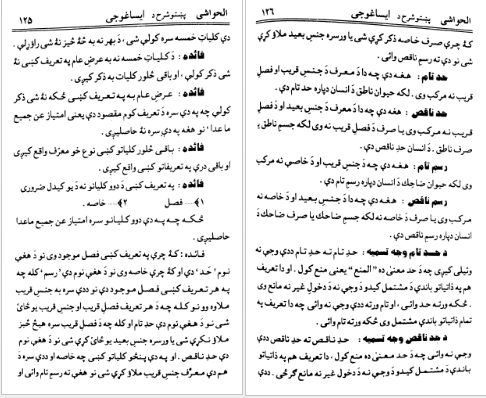 الحواشی پښتوشرح د ایساغوجی ۱۲۵
دې کلیاتِ خمسه سره کولې شی، دَ بهر نه به څهٔ څیز نهٔ شی راوړلې.
فائده : دَ کلیاتِ خمسه نه به عرضِ عام په تعریف کښې نهٔ
شی ذکر کولې، او باقی څلور کلیات به ذکر کیږی.
فائده : عرضِ عام به په تعریف کښې ځکه نهٔ شی ذکر
کولې چه په دې سره دَ تعریف کوم مقصود دې یعنی امتیاز عن جمیع
ما عدا ' نو هغه په دې سره نهٔ حاصلیږی.
فائده : باقی څلور کلیاتو کښې نوع خو معرَّف واقع کیږی
او باقی درې په تعریفاتو کښې واقع کیږی.
فائده : په تعریف کښې دَ دوو کلیاتو نه دَ یو کیدل ضروری
دی ۱﴾.... فصل ۲﴾.... خاصه.
ځکه چه په دې دوو کلیاتو سره امتیاز عن جمیع ماعدا
حاصلیږی.
فائده : کهٔ چرې په تعریف کښې فصل موجود وی نو دَ هغې
نوم 'حد' دې او کهٔ چرې خاصه وی نو دَ هغې نوم دې 'رسم' کله چه
په هر تعریف کښې فصل موجود دې نو ددې سره به جنسِ قریب
ملاوه وو نو کله چه دَ هر تعریف فصلِ قریب او جنسِ قریب یو ځائ
شی نو دَ هغې نوم دې حدِ تام او کله چه دَ فصلِ قریب سره هیڅ څیز
ملاؤ نکړې شی یا ورسره جنسِ بعید یو ځائ کړې شی نو دَ هغې نوم
دې حدِ ناقص. او په دې پنځو کلیاتو کښې چه خاصه او ددې سره دَ
هم دې معرَّف جنسِ قریب ملاؤ کړې شی نو هغې ته رسمِ تام وائی او
الحواشی پښتوشرح د ایساغوجی ۱۲۶
کهٔ چرې صرف خاصه ذکر کړې شی یا ورسره جنسِ بعید ملاؤ کړې
شی نو دې ته رسمِ ناقص وائی.
حد تام : هغه دې چه دَ معرف دَ جنسِ قریب او فصلِ
قریب نه مرکب وی لکه حیوان ناطق دَ انسان دپاره حد تام دې.
حد ناقص : هغه دې چه دا دَ معرف دَ جنسِ بعید او فصلِ
قریب نه مرکب وی یا صرف دَ فصلِ قریب نه وی لکه جسم ناطق،
صرف ناطق . دَ انسان دپاره حد ناقص دې.
رسم تام : هغه دې چه دَ جنسِ قریب او دَ خاصې نه مرکب
وی لکه حیوان ضاحك دَ انسان دپاره رسمِ تام دې.
رسم ناقص : هغه دې چه دَ جنسِ بعید او دَ خاصه نه
مرکب وی یا صرف دَ خاصه نه لکه جسم ضاحك یا صرف ضاحك دَ
انسان دپاره رسم ناقص دې.
د حد تام وجه تسمیه : حدِ تام ته حدِ تام ددې وجې نه
وئیلی کیږی چه دَ حد معنیٰ ده ”المنع“ یعنی منع کول . او دا تعریف
هم په ذاتیاتو باندې دَ مشتمل کیدو دَ وجې نه دَ دخولِ غیر نه مانع وی
. ځکه ورته حد وائی، او تام ورته ددې وجې نه وائی چه دا تعریف په
تمام ذاتیاتو باندې مشتمل وی ځکه ورته تام وائی.
د حد ناقص وجه تسمیه : حدِ ناقص ته حدِ ناقص ددې
وجې نه وائی چه دَ حد معنیٰ ده منع کول، دا تعریف هم په ذاتیاتو
باندې دَ مشتمل کیدو دَ وجې نه دَ دخول غیر نه مانع ګرځی. ددې